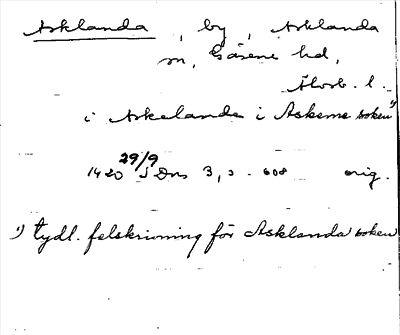 Asklanda, by, Asklanda
sn, Gäsene hd,
Älvsb. l.
i Askelanda i Askeme soken¹)
1420 29/9 SDns 3, s. 608 orig.
¹) tydl. felskrivning för Asklanda soken